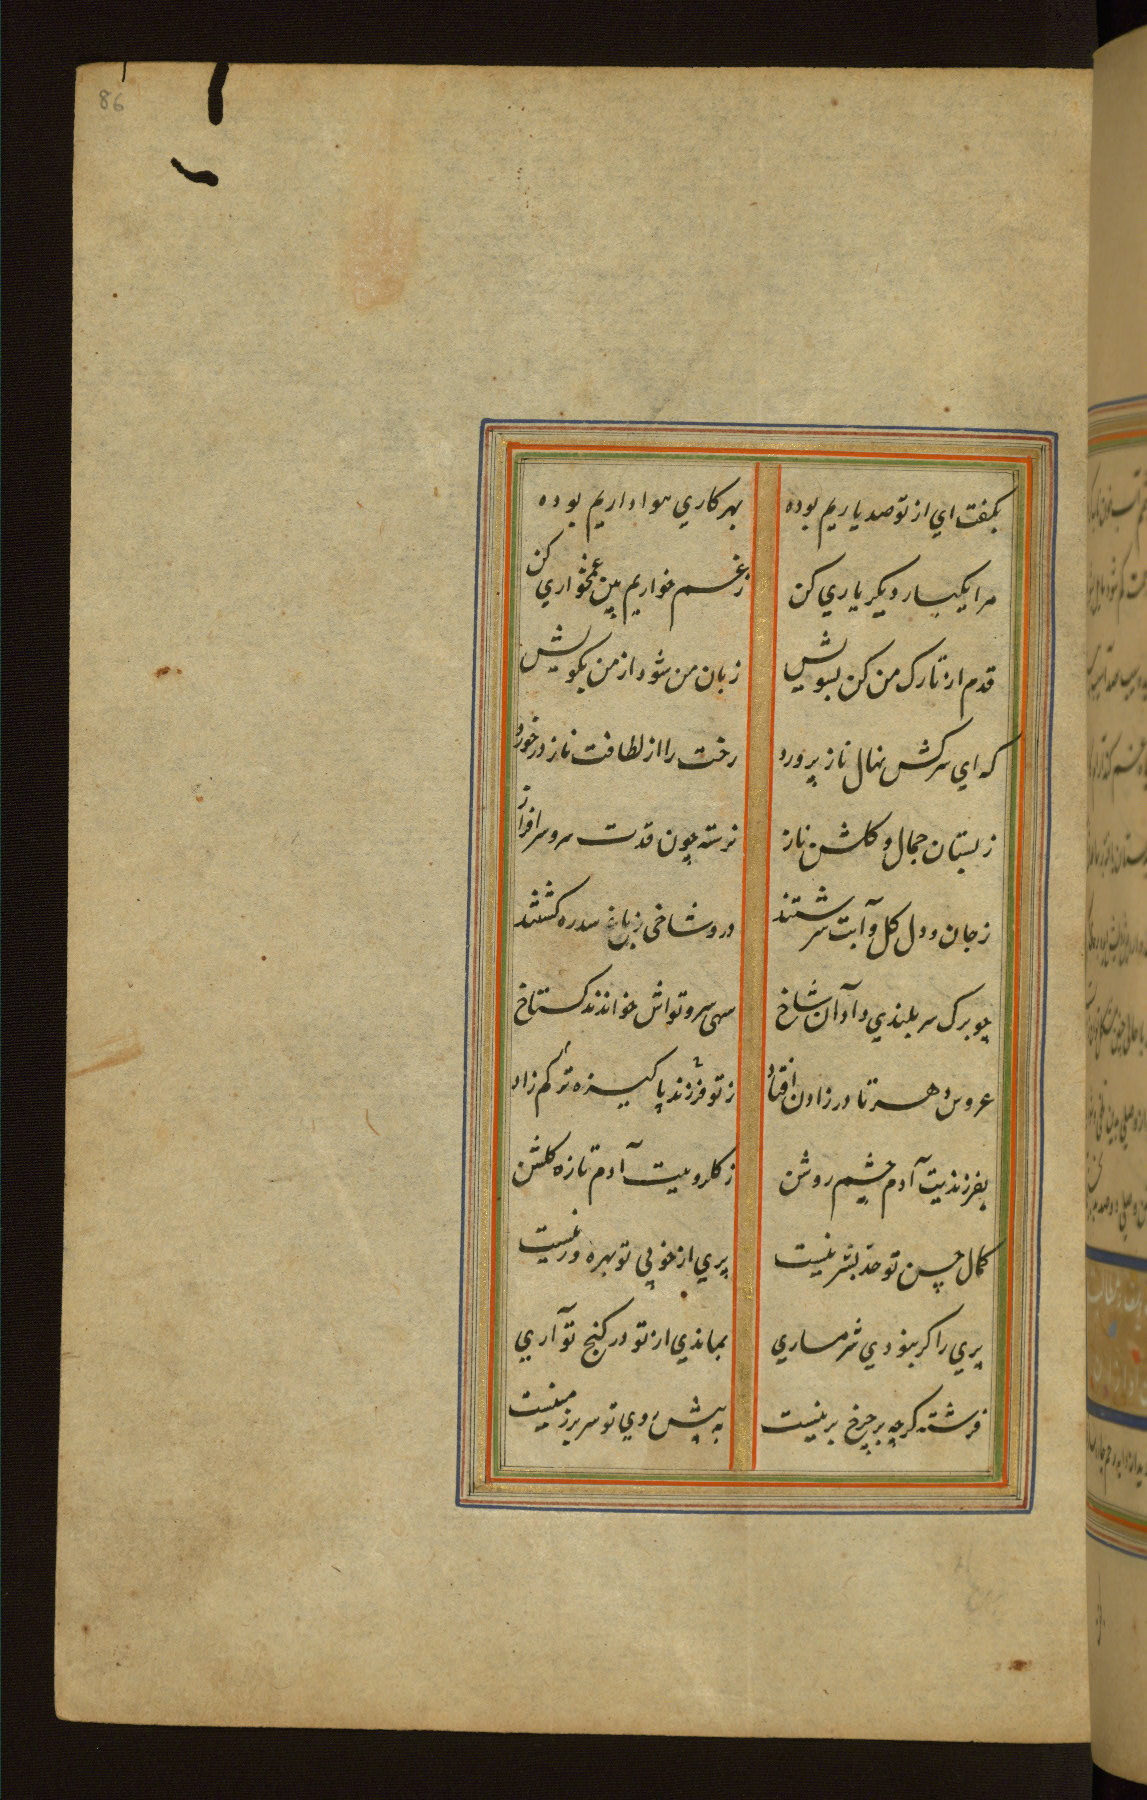 86
بگفت اي از تو صد ياريم بوده بهر كاري هواداريم بوده
مرا يكبار ديكر ياري كن ز غم خواريم بين غمخواري كن
قدم از تارك من كن بسويش زبان من شو و از من بكويش
كه اي سركش نهال ناز پرورد رخت را از لطافت ناز در خورد
ز بستان جمال و كلشن ناز نرسته چون قدت سرو سرافراز
ز جان و دل كل و آبت سرشتند در و شاخى ز باغ سدره كشتند
چو برك سر بلندي داد آن شاخ سهى سرو تواش خواندند كستاخ
عروس دهر تا در زادن افتاد ز تو فرزند پاكيزه تر كم زاد
بفرزنديت آدم چشم روشن ز كلرويت آدم تازه كلشن
كمال حسن تو حد بشر نيست پري از خوبي تو بهره ور نيست
پري را كر نبودي شرمساري نماندي از تو در كنج تواري
فرشته كرچه بر چرخ برينست به پيش روي تو سر بر زمينست